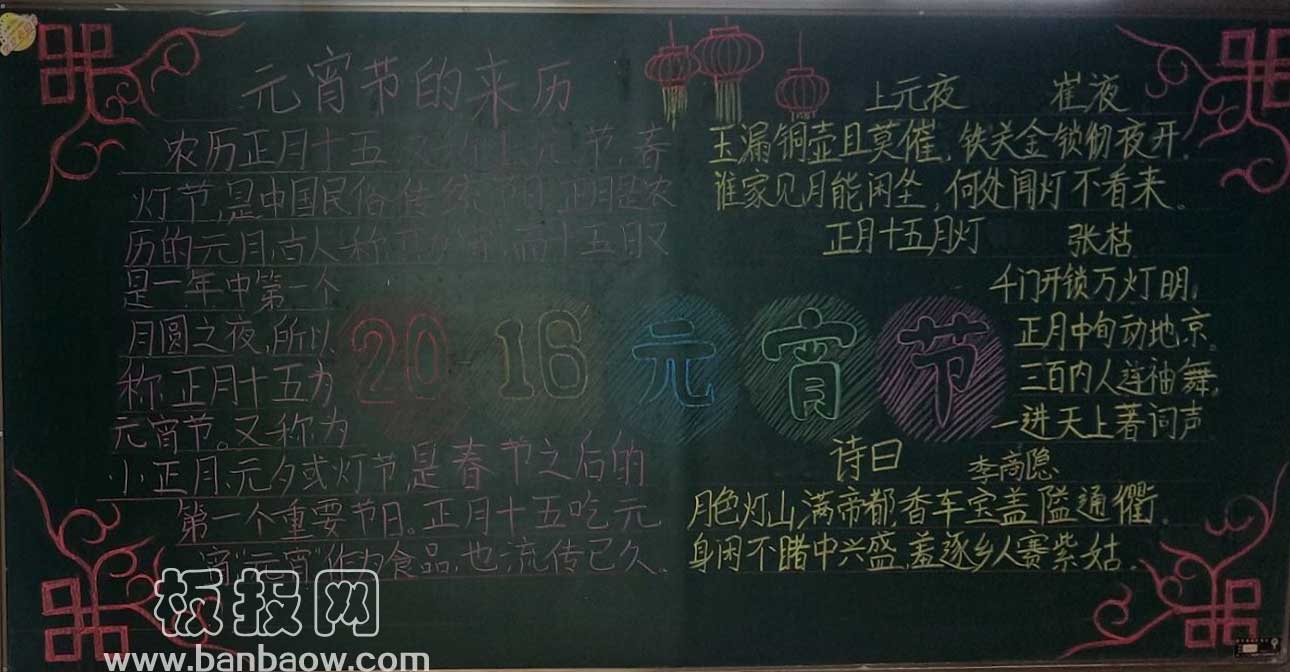 元宵节的来历
农历正月十五,又称上元节,春
灯节,是中国民俗传统节日,正月是农
历的元月,古人称夜为宵,而十五日又
是一年中第一个
月圆之夜,所以
称正月十五为
元宵节。又称为
小正月、元夕或灯节是春节之后的
第一个重要节日。正月十五吃元
宵"元宵"作为食品,也流传已久。
20-16元宵节
上元夜 崔液
玉漏铜壶且莫催,铁关金锁彻夜开,
谁家见月能闲坐,何处闻灯不看来。
正月十五月灯 张祜
千门开锁万灯明,
正月中旬动地京。
三百内人连袖舞,
一进天上著词声
诗曰 李商隐
月色灯山满帝都,香车宝盖隘通衢。
身闲不睹中兴盛,羞逐乡人赛紫姑。
板报网
www.banbaow.com